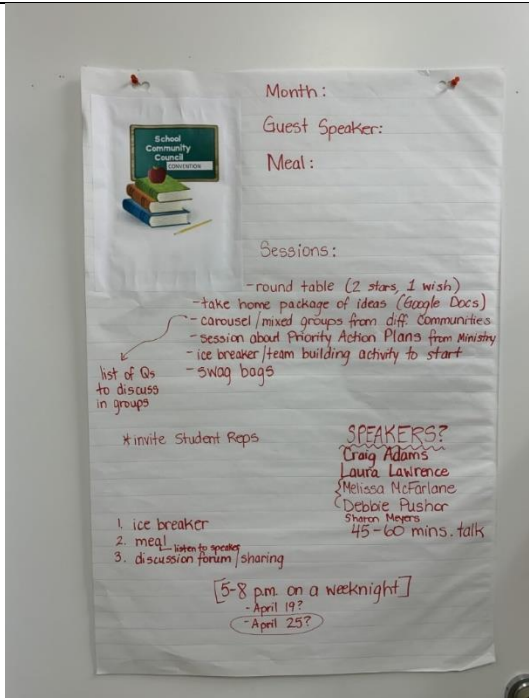 School
Community
Council
CONVENTION
Month:
Guest Speaker:
Meal:
Sessions:
- round table (2 stars, 1 wish)
- take home package of ideas (Google Docs)
- carousel/mixed groups from diff. communities
- session about Priority Action Plans from Ministry
- ice breaker/team building activity to start
- swag bags
list of Qs
to discuss
in groups
* invite Student Reps
SPEAKERS?
Craig Adams
Laura Lawrence
Melissa McFarlane
Debbie Pushor
Sharon Meyers
45-60 mins. talk
1. ice breaker
2. meal
listen to speaker
3. discussion forum/sharing
[5-8 p.m. on a weeknight]
- April 19?
- April 25?